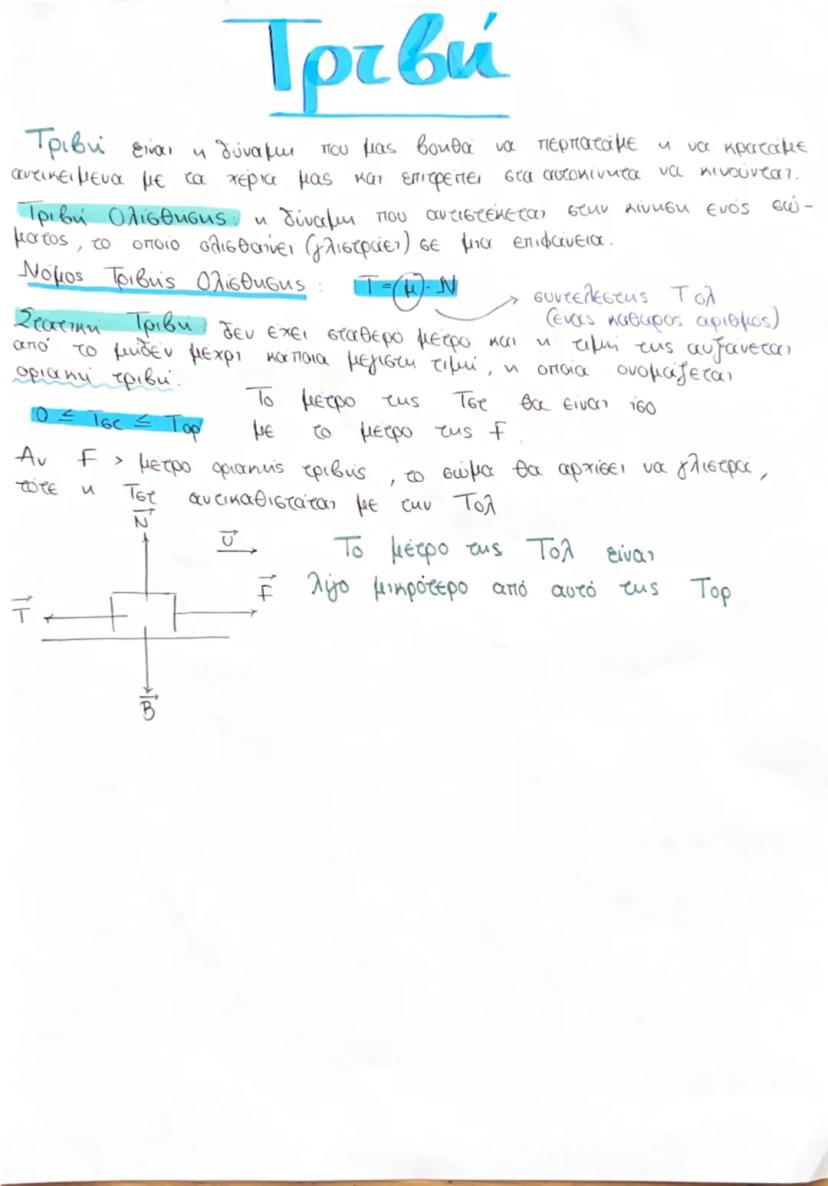 Τριβή
Τριβή είναι η δύναμη που μας βοηθά να περπατάμε ή να κρατάμε
αντικείμενα με τα χέρια μας και επιτρέπει στα αυτοκίνητα να κινούνται.
Τριβή Ολίσθησης: η δύναμη που αντιστέκεται στην κίνηση ενός σώ-
ματος, το οποίο ολισθαίνει (γλιστράει) σε μια επιφάνεια.
Νόμος Τριβής Ολίσθησης: T = μ · N
συντελεστής Τολ
(ένας καθαρός αριθμός)
Στατική Τριβή: δεν έχει σταθερό μέτρο και η τιμή της αυξάνεται
από το μηδέν μέχρι κάποια μέγιστη τιμή, η οποία ονομάζεται
οριακή τριβή.
Το μέτρο της Τστ θα είναι ίσο
0 ≤ Τστ ≤ Τορ με το μέτρο της F.
Αν F > μέτρο οριακής τριβής, το σώμα θα αρχίσει να γλιστρά,
τότε η Τστ αντικαθίσταται με την Τολ
N⃗
υ⃗
Το μέτρο της Τολ είναι
T⃗
F⃗
λίγο μικρότερο από αυτό της Τορ
B⃗